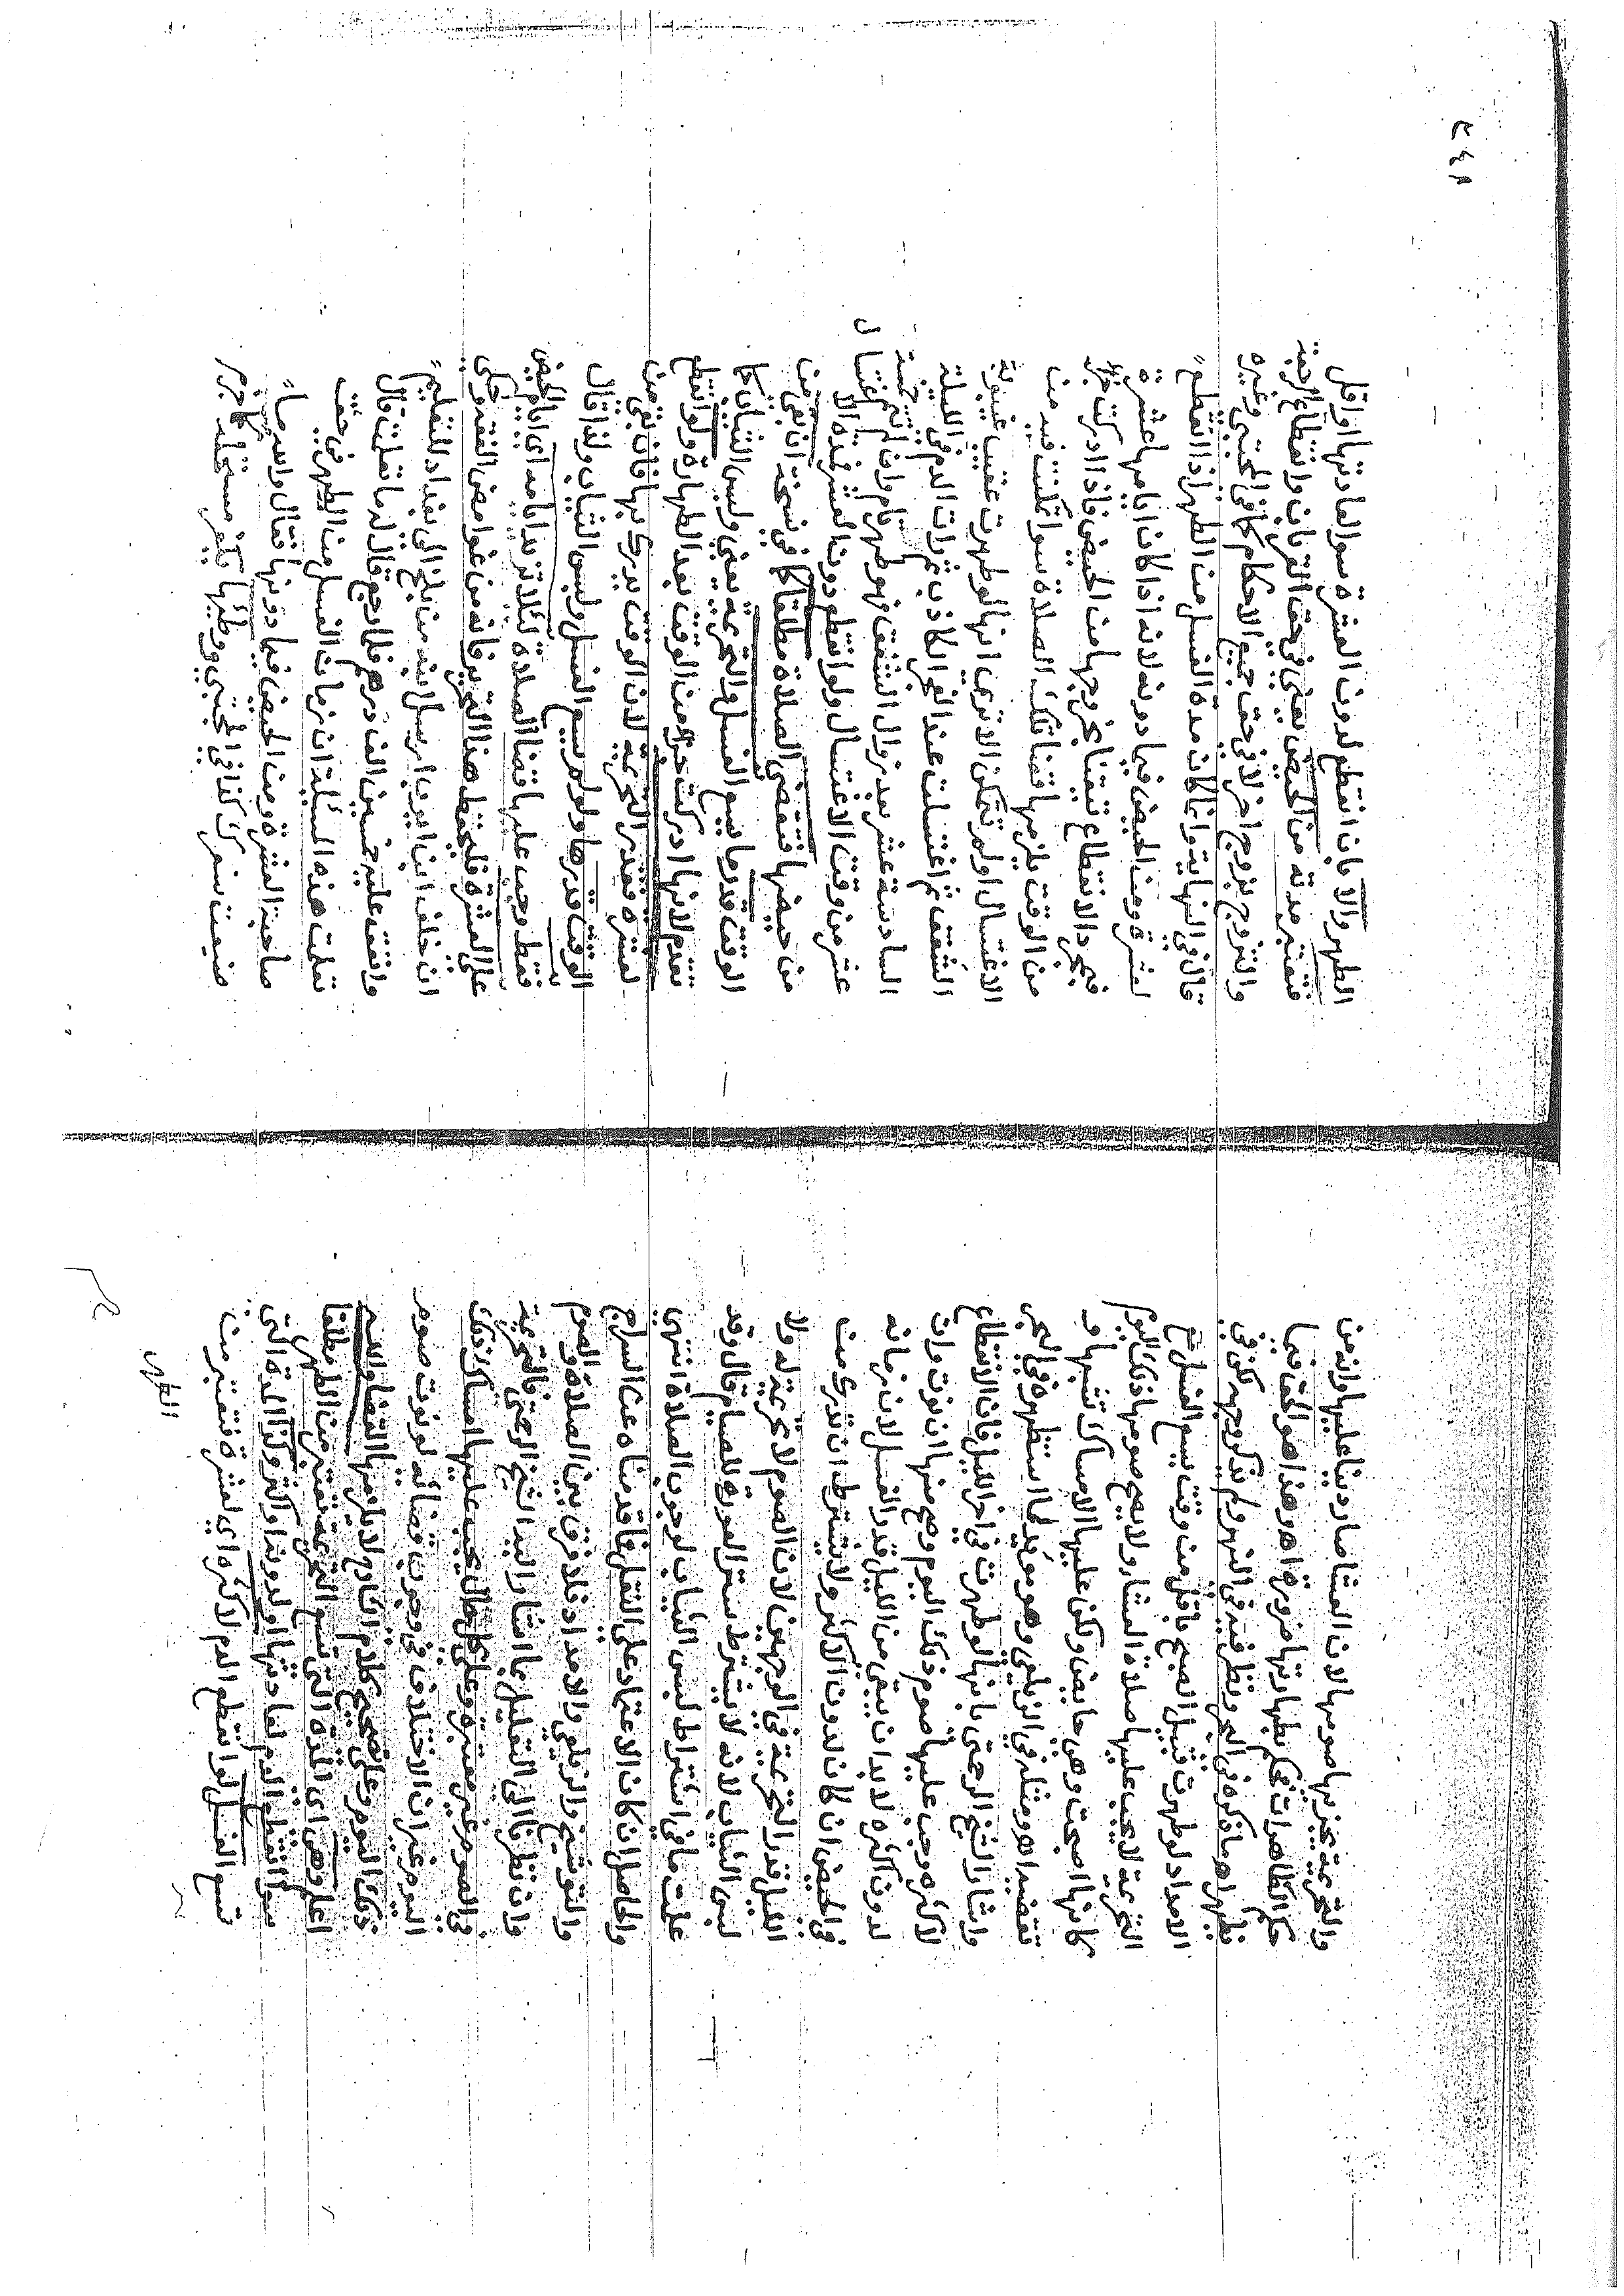 والتحريمة يجزيها صومها لان العشا صار دينا عليها وانه من
حكم الطاهرات فحكم بطهارتها ضرورة اه وهذا هو الحق فيما
يظهر اه ما ذكره في البحر ونظر فيه في النهر ولم يذكر وجهه لكن في
الامداد لو طهرت قبيل الصبح باقل من وقت يسع الغسل مع
التحريمة لا يجب عليها صلاة العشا ولا يصح صومها ذلك اليوم
كانها اصبحت وهي حايض ولكن عليها الامساك تشبها و
تقضيه اه ومثله في الزيلعي وهو مويد لما استظهره في البحر
واشار الشيخ الرحمتي بانها لو طهرت في اخر الليل فان الانقطاع
لاكثره وجب عليها صوم ذلك اليوم وصح منها ان نوت وان
لدون اكثره لا بد ان يبقى من الليل قدر الغسل لان زمانه
في الحيض ان كان لدون الاكثر ولا يشترط ان تدرى من
الليل قدر التحريمة في الوجهين لان الصوم لا تحريمة له ولا
لبس الثياب لانه لا يشترط ستر العورة للصيام قال وقد
علمت ما في اشتراط لبس الثياب لوجوب الصلاة انتهى
والحاصل ان كان الاعتماد على النقل فما قدمناه عن السراج
والتوشيح والزيلعي والامداد فلا فرق بين الصلاة والصوم
وان نظرنا الى التعليل بما اشار اليه الشيخ الرحمتي فالتحريمة
في الصوم غير معتبرة وعلى كل حال يجب عليها امساك ذلك
اليوم غير ان الاختلاف في وجوب قضائه لو نوت صوم
ذلك اليوم وعلى تصحيح كلام الشارح لا يلزمها القضا والله
اعلم وهي اى المدة التي تسع التحريمة تعتبر من الطهر مطلقا
سوا انقطع الدم لعادتها او لدونها او لاكثر وكذا المدة التي
تسع الغسل لو انقطع الدم لاكثره اي لعشرة فتعتبر من
الطهر
٢٤١
الطهر والا بان انقطع لدون العشرة سوا لعادتها او اقل
فتعتبر مدته من الحيض يعني في حق القربان وانقطاع الرجعة
والتزوج بزوج اخر لا في حق جميع الاحكام كما في المجتبى وغيره
قال في النهاية وانما كان مدة الغسل من الطهر اذا انقطع
لعشرة ومن الحيض فيما دونه لانه اذا كان ايامها عشرة
فبمجرد الانقطاع تيقنا بخروجها من الحيض فاذا ادركت جزء
من الوقت يلزمها قضا تلك الصلاة سوا تمكنت فيه من
الاغتسال او لم تتمكن الا ترى انها لو طهرت عقيب غيبوبة
الشفق ثم اغتسلت عند الفجر الكاذب ثم رات الدم في الليلة
السادسة عشر بعد زوال الشفق فهو طهر تام وان لم يتم خمسة
عشر من وقت الاغتسال ولو انقطع دون العشر فمدة الاغتسال
من حيضها فتقضى الصلاة مطلقا كما في نسخة ان بقي من
الوقت قدر ما يسع الغسل والتحريمة يعني ولبس الثياب كما
تقدم لانها ادركت جزءا من الوقت بعد الطهارة ولو انقطع
لعشرة فقدر التحريمة لان الوقت يدرك بها فان بقى من
الوقت قدرها ولو لم يسع الغسل ولبس الثياب ولذا قال
فقط وجب عليها قضا الصلاة لئلا تزيد ايامه اي ايام الحيض
على العشرة فليحفظ هذا التحرير فانه من غوامض الفقه وحكى
ان خلف ابن ايوب ارسل ابنه من بلخ الى بغداد للتعليم
وانفق عليه خمسين الف درهم فلما رجع قال له ما تعلمت قال
تعلمت هذه المسئلة ان زمان الغسل من الطهر في حق
صاحبة العشرة ومن الحيض فيما دونها فقال والله ما
ضيعت سفرك كذا في المجتبى ووطيها يكفر مستحله كما جزم